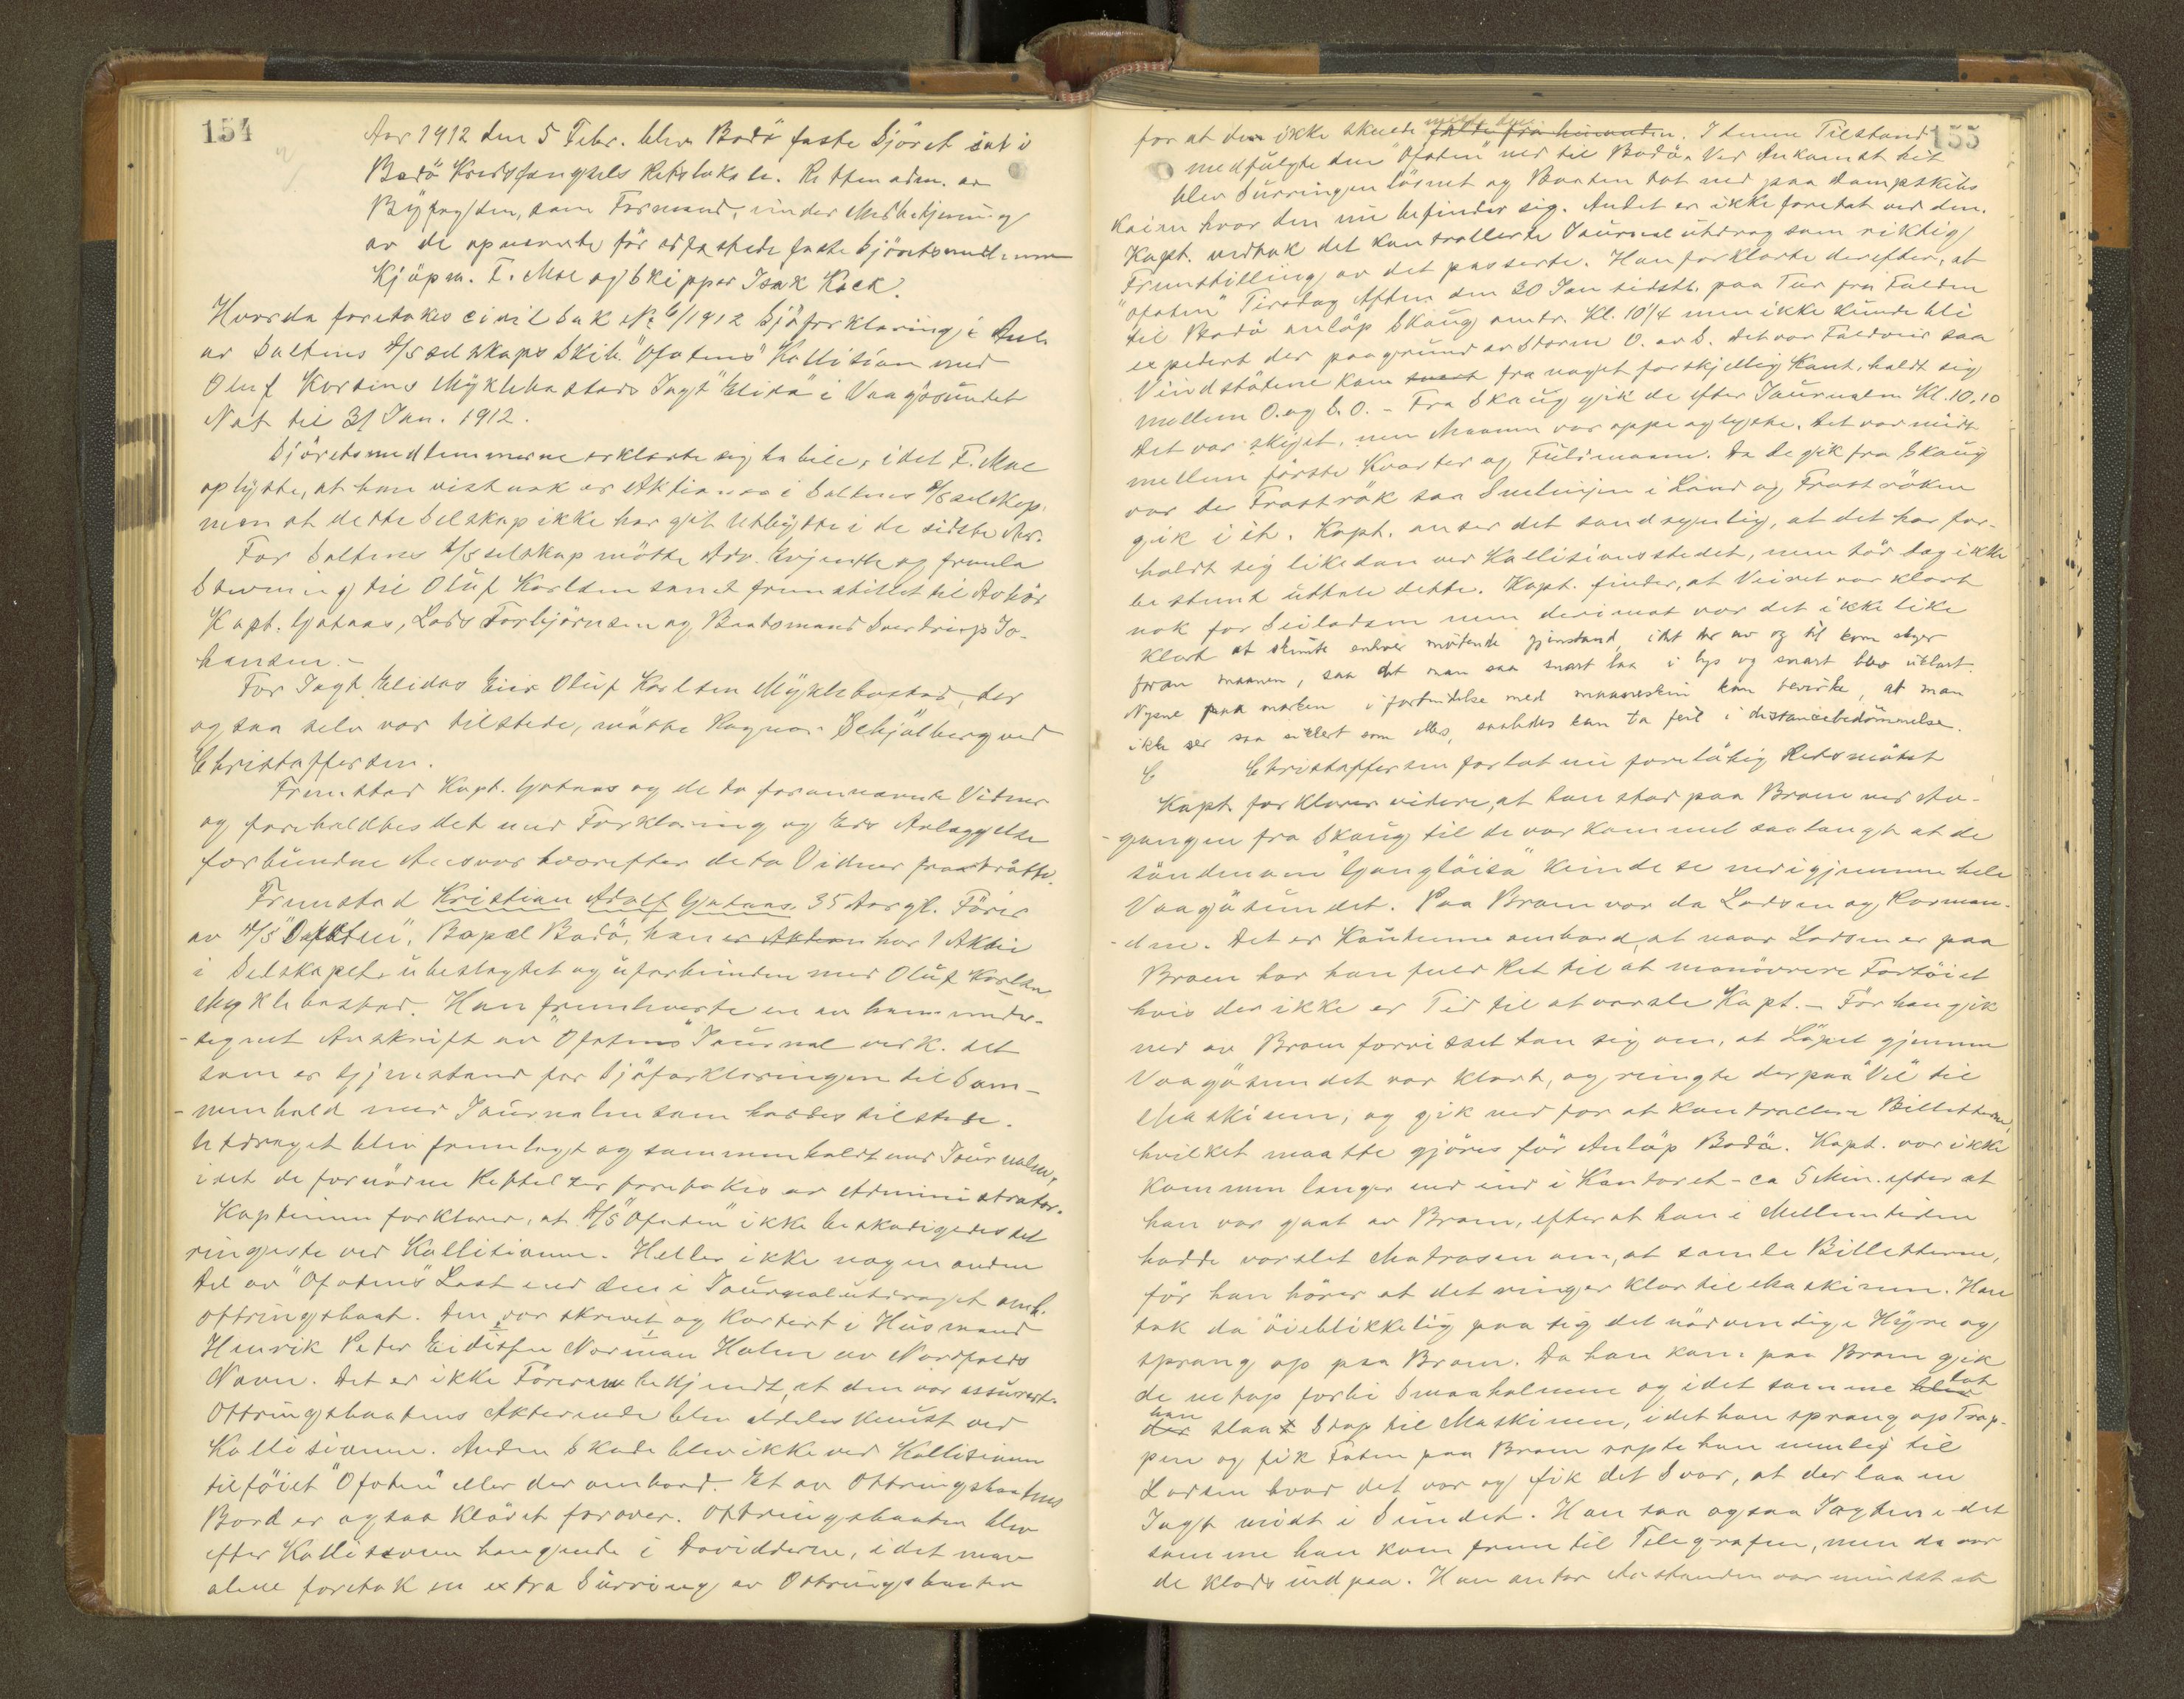 154
Aar 1912 den 5 Febr. blev Bodö faste Sjöret sat i
Bodö Kredsfængsels Retslokale. Retten adm. av
Byfogden, som Formand, under Medbetjening
av de opnævnte för edfæstede faste Sjöretsmedlemmer
Kjöpm. F. Moe og Skipper Isak Koek.
Hvorda foretokes civil Sak No 6/1912 Sjöforklaring i Anl.
av Saltens D/S selskaps Skib "Ofotens" Kollision med
Oluf Korsens Myklebostads Jagt "Elida" i Vaagösundet
Nat til 31 Jan. 1912.
Sjöretsmedlemmerne erklærte sig habile, idet F. Moe
oplyste, at han vistnok er Aktionær i Saltens D/S selskap,
men at dette Selskap ikke har git Utbytte i de sidste Aar.
For Saltens D/S selskap mötte Adv. Evjenth og fremla
Stevning til Oluf Karlsen samt fremstillet til Avhör
Kapt. Gataas, Lods Torbjörnsen og Baatsmand Sverdrup Jo-
hansen. -
For Jagt Elidas Eier Oluf Karlsen Myklebostad, der
ogsaa selv var tilstede, mötte Ragnar Schjölberg ved
Christoffersen.
Fremstod Kapt. Gataas og de to forannævnte Vidner
og foreholdtes det med Forklaring og Eds Avlæggelse
forbundne Ansvar hvorefter de to Vidner fratraatte.
Fremstod Kristian Adolf Gataas 35 Aar gl. Förer
av D/S "Ofoten", Bopæl Bodö, han er Aktion har 1 Aktie
i Selskapet, ubeslegtet og uforbunden med Oluf Karlsen
Myklebostad. Han fremleverte en av ham under-
-tegnet Avskrift av "Ofotens" Journal vedk. det
som er Gjenstand for Sjöforklaringen til Sam-
-menhold med Journalen som hadtes tilstede.
Utdraget blev fremlagt og sammenholdt med Journalen,
idet de fornödne Rettelser foretokes av Administrator.
Kapteinen forklarer, at D/S "Ofoten" ikke beskadigedes det
ringeste ved Kollisionen. Heller ikke nogen anden
Del av "Ofotens" Last end den i Journalutdraget omh.
ottringsbaat. Den var skrevet og kartert i Husmand
Henrik Peter Eidissen Norman Holm av Nordfolds
Navn. Det er ikke Föreren bekjendt, at den var assurert.
Ottringsbaatens Akterende blev aldeles knust ved
Kollisionen. Anden Skade blev ikke ved Kollisionen
tilföiet "Ofoten" eller der ombord. Et av Ottringsbaatens
Bord er ogsaa klövet forover. Ottringsbaaten blev
efter Kollisionen hængende i Davidderne, idet man
alene foretok en extra Surring av Ottringsbaaten
155
for at den ikke skulde miste den falde fra hinanden. I denne Tilstand
medfulgte den "Ofoten" ned til Bodö. Ved Ankomst hit
blev Surringen lösnet og Baaten tat ned paa Dampskibs
kaien hvor den nu befinder sig. Andet er ikke foretat ved den.
Kapt. vedtok det kontrollerte Journalutdrag som riktig
Fremstilling av det passerte. Han forklarte derefter, at
"Ofoten" Tirsdag Aften den 30 Jan sidstl. paa Tur fra Folden
til Bodö anlöp Skaug omtr. Kl. 10 1/4 men ikke kunde bli
expedert der paagrund av Storm O. av S. Det var Faldveir saa
Vindstötene kom svært fra noget forskjellig Kant, holdt sig
mellem O. og S.O. - Fra Skaug gik de efter Journalen Kl. 10.10
Det var skyet, men Maanen var oppe og lyste. Det var midt
mellem förste Kvarter og Fuldmaane. Da de gik fra Skaug
var der Froströk saa Snelinjen i Land og Froströken
gik i ét. Kapt. anser det sandsynlig, at det har for-
holdt sig likedan ved Kollisionsstedet, men tör dog ikke
bestemt uttale dette. Kapt. finder, at Veiret var klart
nok for Seiladsen men derimot var det ikke like
klart at skimte enhver mötende gjenstand, idet der av og til kom skyer
foran maanen, saa at man saa snart laa i lys og snart blev uklart.
Nysne paa marken i forbindelse med maaneskin kan bevirke, at man
ikke ser saa sikkert som ellers, saaledes kan ta feil i distancebedömmelse.
C Christoffersen forlot nu foreløbig Retsmötet
Kapt. forklarer videre, at han stod paa Broen ved Av-
-gangen fra Skaug til de var kommet saa langt at de
söndenom "Gangtöisa" kunde se ned igjennem hele
Vaagösundet. Paa Broen var da Lodsen og Rorman-
-den. Det er Kutume ombord, at naar Lodsen er paa
Broen har han fuld Ret til at manövrere Fartöiet
hvis der ikke er Tid til at varsle Kapt. - För han gik
ned av Broen forvisset han sig om, at Löpet gjennem
Vaagösundet var klart, og ringte derpaa "Vel" til
Maskinen, og gik ned for at kontrollere Billetterne,
hvilket maatte gjöres för Anlöp Bodö. Kapt. var ikke
kommen længer end ind i Kontoret - ca 5 Min. efter at
han var gaat av Broen, efterat han i Mellemtiden
hadde varslet Matrosen om, at samle Billetterne,
för han hörer at det ringer klar til Maskinen. Han
tok da öieblikkelig paa sig det nödvendige Hyre og
sprang op paa Broen. Da han kom paa Broen gik
de netop forbi Smaaholmene og idet samme blev lot
der han slaa t Stop til Maskinen, idet han sprang op Trap-
pen og fik Foten paa Broen ropte han nemlig til
Lodsen hvad det var og fik det Svar, at der laa en
Jagt midt i Sundet. Han saa ogsaa Jagten i det
samme han kom frem til Telegrafen, men da var
de klods ind paa. Han antar Avstanden var mindst et